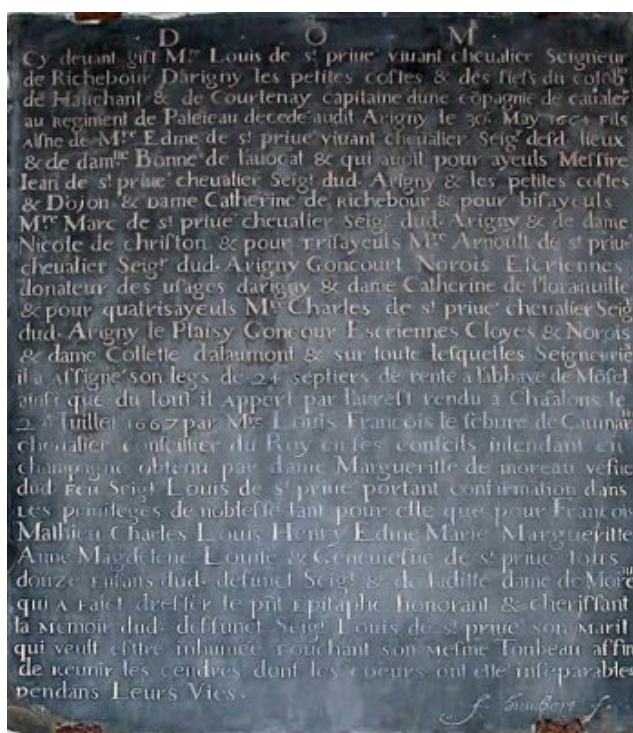 D O M
Cy deuant gist M.re Louis de st priue viuant cheualier Seigneur
de Richebour Darigny les petites costes & des fiefs du colob.r
de Hauchant & de Courtenay capitaine dune cõpagnie de caualer
au Regiment de Paleieau decede audit Arigny le 30. May 1664 Fils
Aisne de M.re Edme de st priue viuant cheualier Seig.r desd. lieux
& de dam.lle Bonne de lauocat & qui auoit pour ayeuls Messire
Iean de st priue cheualier Seig.r dud. Arigny & les petites costes
& Dojon & Dame Catherine de Richebour & pour bisayeuls
M.re Marc de st priue cheualier Seig.r dud. Arigny & de dame
Nicole de christon & pour Trisayeuls M.re Arnoult de st priue
cheualier Seig.r dud. Arigny Goncourt Norois Escriennes
donateur des usages darigny & dame Catherine de floranuille
& pour quatrisayeuls M.re Charles de st priue cheualier Seig.r
dud. Arigny le Plaisy Goncour Escriennes Cloyes & Norois
& dame Collette dalaumont & sur toute lesquelles Seigneuries
il a Assigne son legs de 24 septiers de rente a labbaye de Mõsel
ainsi que du tout il Appert par larrest rendu a Chaalons le
Iuillet 1667 par M.re Louis Francois le febure de Caumar.tin
cheualier conseillier du Roy en ses conseils intendant en
champagne obtenu par dame Margueritte de moreau vefue
dud. Feu Seig.r Louis de st priue portant confirmation dans
Les priuileges de noblesse tant pour elle que pour Francois
Mathieu Charles Louis Henry Edme Marie Margueritte
Anne Magdelene Louise & Geneuiefue de st priue tous
douze Enfans dud. defunct Seig.r & de laditte dame de Moreau
qui A Faict dresser le pñt Epitaphe honorant & cherissant
la Memoir dud. deffunct Seig.r Louis de st priue son Marit
qui veult estre inhumée touchant son Mesme Tonbeau affin
de Reunir les cendres dont les coeurs ont esté inseparables
Pendans Leurs Vies.
f.